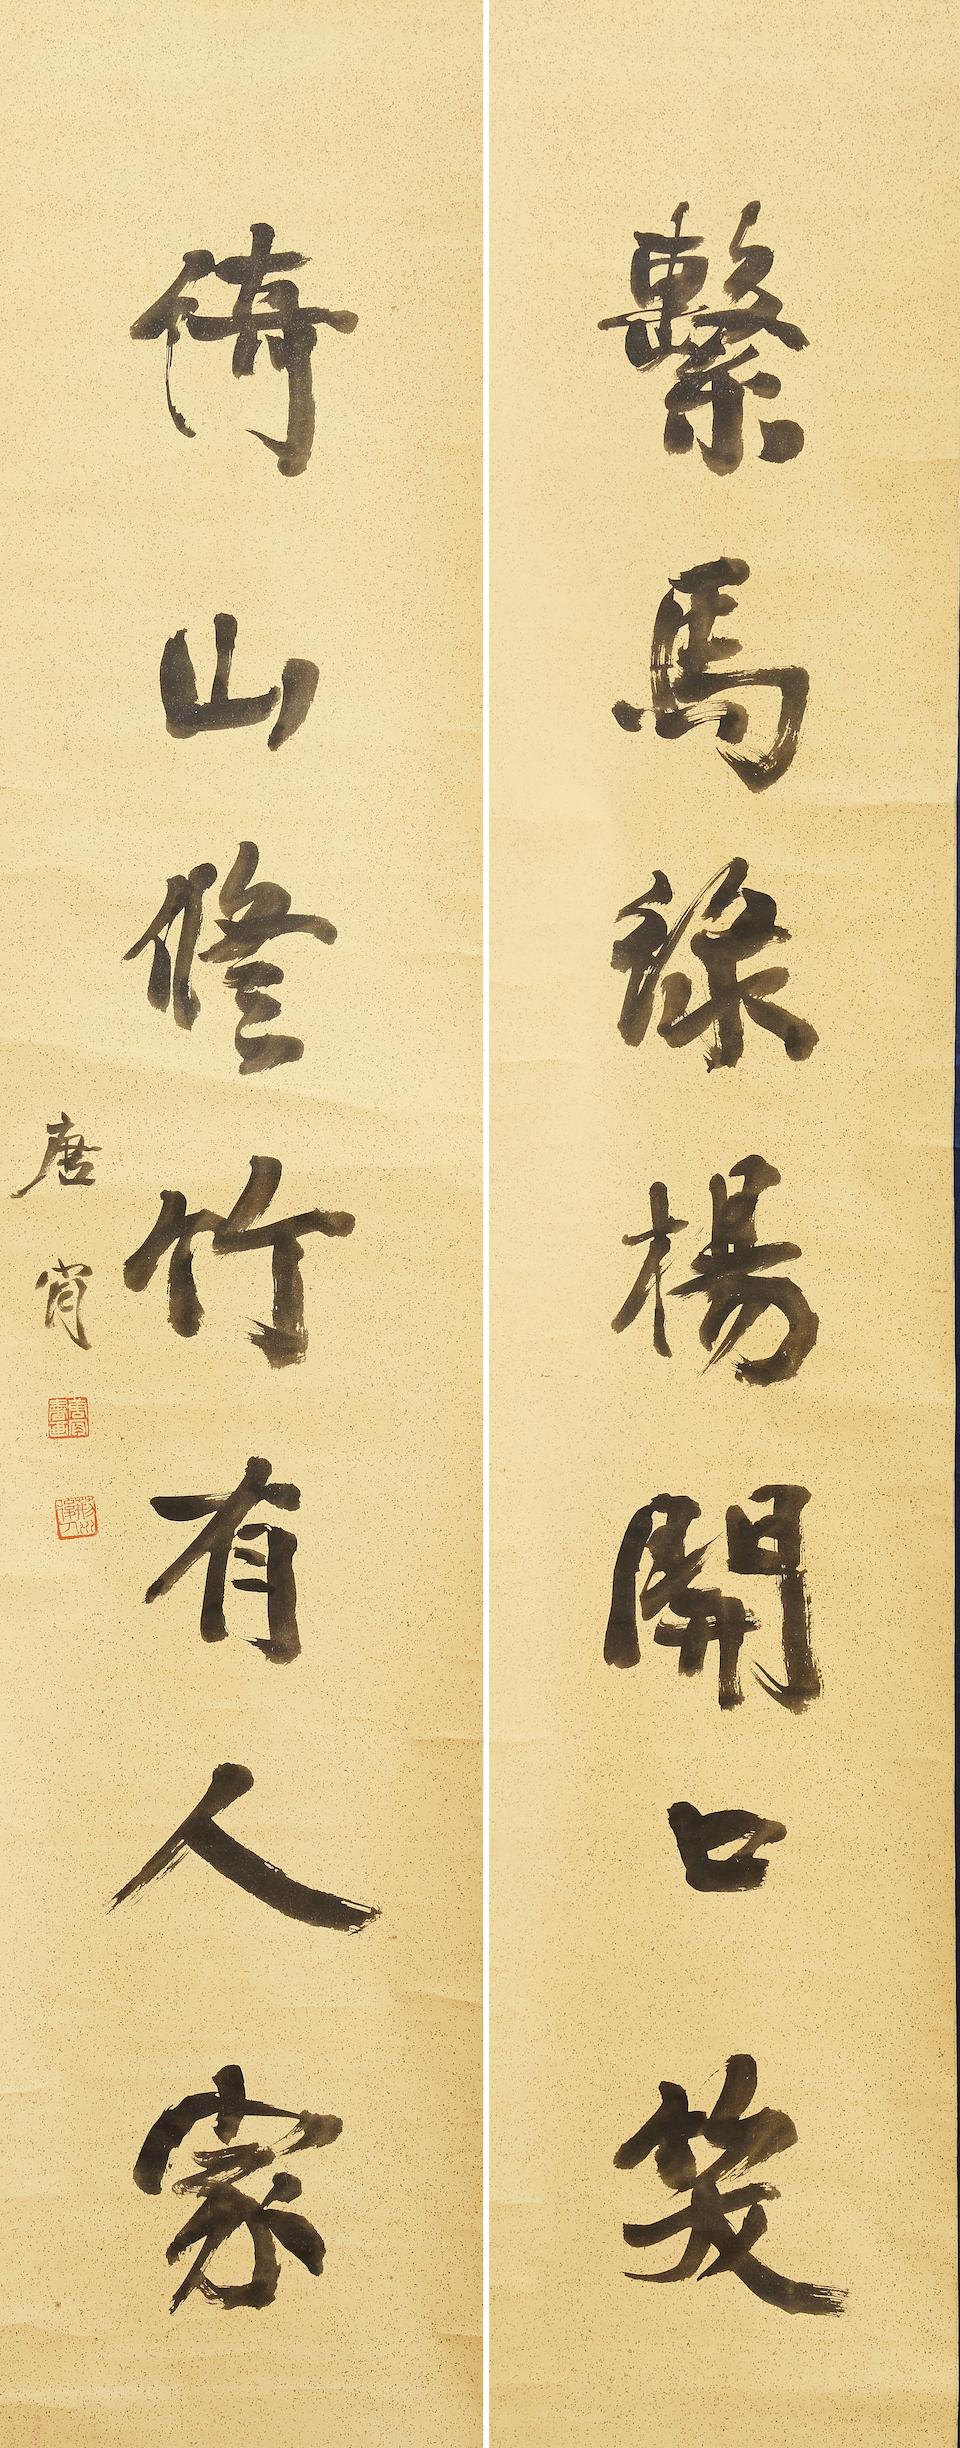 繫馬綠楊開口笑
倚山修竹有人家
唐肯